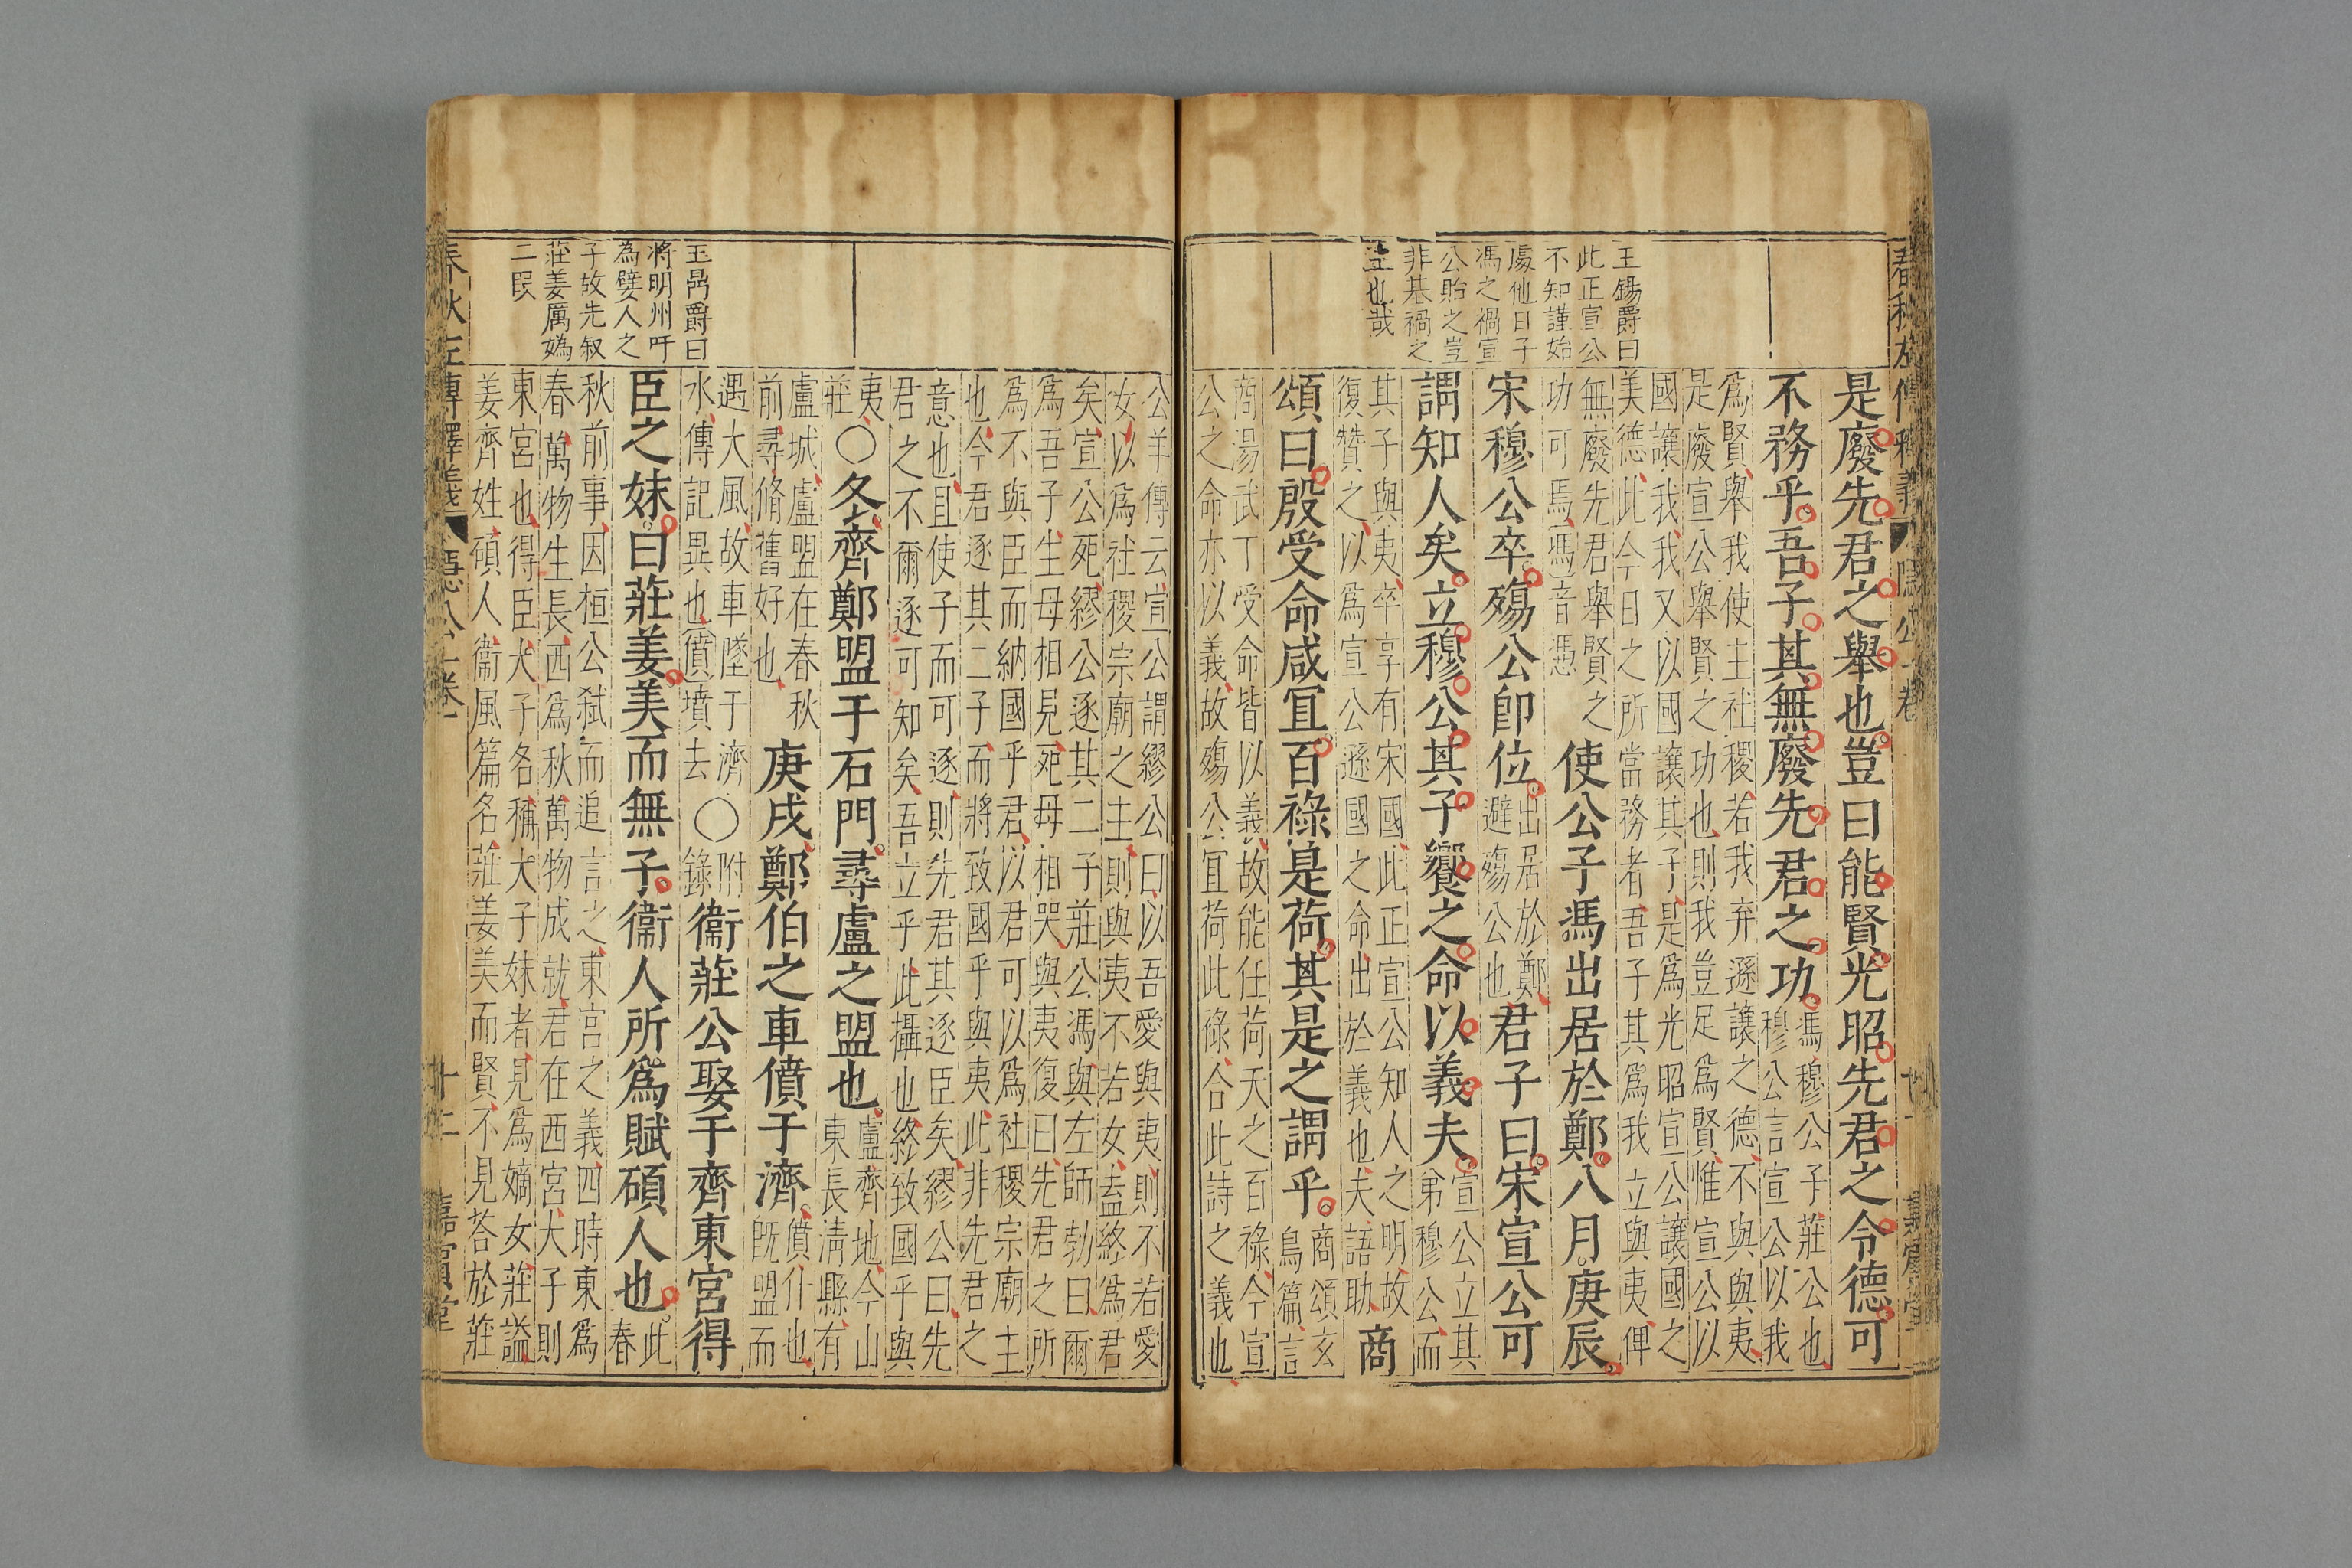 春秋左傳釋義
隱公一卷
王錫爵曰
此正宣公
不知謹始
處他日子
馮之禍宣
公貽之豈
非基禍之
主也哉
是廢先君之舉也豈曰能賢光昭先君之令德可
不務乎吾子其無廢先君之功馮穆公子莊公也
穆公言宣公以我
爲賢舉我使主社稷若我弃遜讓之德不與與夷
是廢宣公舉賢之功也則我豈足爲賢惟宣公以
國讓我我又以國讓其子是爲光昭宣公讓國之
美德此今日之所當務者吾子其爲我立與夷俾
無廢先君舉賢之
功可焉馮音憑
使公子馮出居於鄭八月庚辰
宋穆公卒殤公卽位出居於鄭
避殤公也
君子曰宋宣公可
謂知人矣立穆公其子饗之命以義夫宣公立其
弟穆公而
其子與夷卒享有宋國此正宣公知人之明故
復贊之以爲宣公遜國之命出於義也夫語助
商
頌曰殷受命咸宜百祿是荷其是之謂乎商頌玄
鳥篇言
商湯武丁受命皆以義故能任荷天之百祿今宣
公之命亦以義故殤公宜荷此祿合此詩之義也
王錫爵曰
將明州吁
為嬖人之
子故先叙
莊姜厲媯
二段
公羊傳云宣公謂繆公曰以吾愛與夷則不若愛
女以爲社稷宗廟之主則與夷不若女盍終爲君
矣宣公死繆公逐其二子莊公馮與左師勃曰爾
爲吾子生毋相見死毋相哭與夷復曰先君之所
爲不與臣而納國乎君以君可以爲社稷宗廟主
也今君逐其二子而將致國乎與夷此非先君之
意也且使子而可逐則先君其逐臣矣繆公曰先
君之不爾逐可知矣吾立乎此攝也終致國乎與
夷
莊
○冬齊鄭盟于石門尋盧之盟也盧齊地今山
東長淸縣有
盧城盧盟在春秋
前尋脩舊好也
庚戌鄭伯之車僨于濟僨什也
旣盟而
遇大風故車墜于濟
水傳記異也僨墳去
○附
錄
衞莊公娶于齊東宮得
臣之妹曰莊姜美而無子衞人所爲賦碩人也此
春
秋前事因桓公弑而追言之東宮之義四時東爲
春萬物生長西爲秋萬物成就君在西宮大子則
東宮也得臣大子各稱大子妹者見爲嫡女莊謚
姜齊姓碩人衞風篇名莊姜美而賢不見荅於莊
春秋左傳釋義
隱公一卷
十二
嘉賓堂